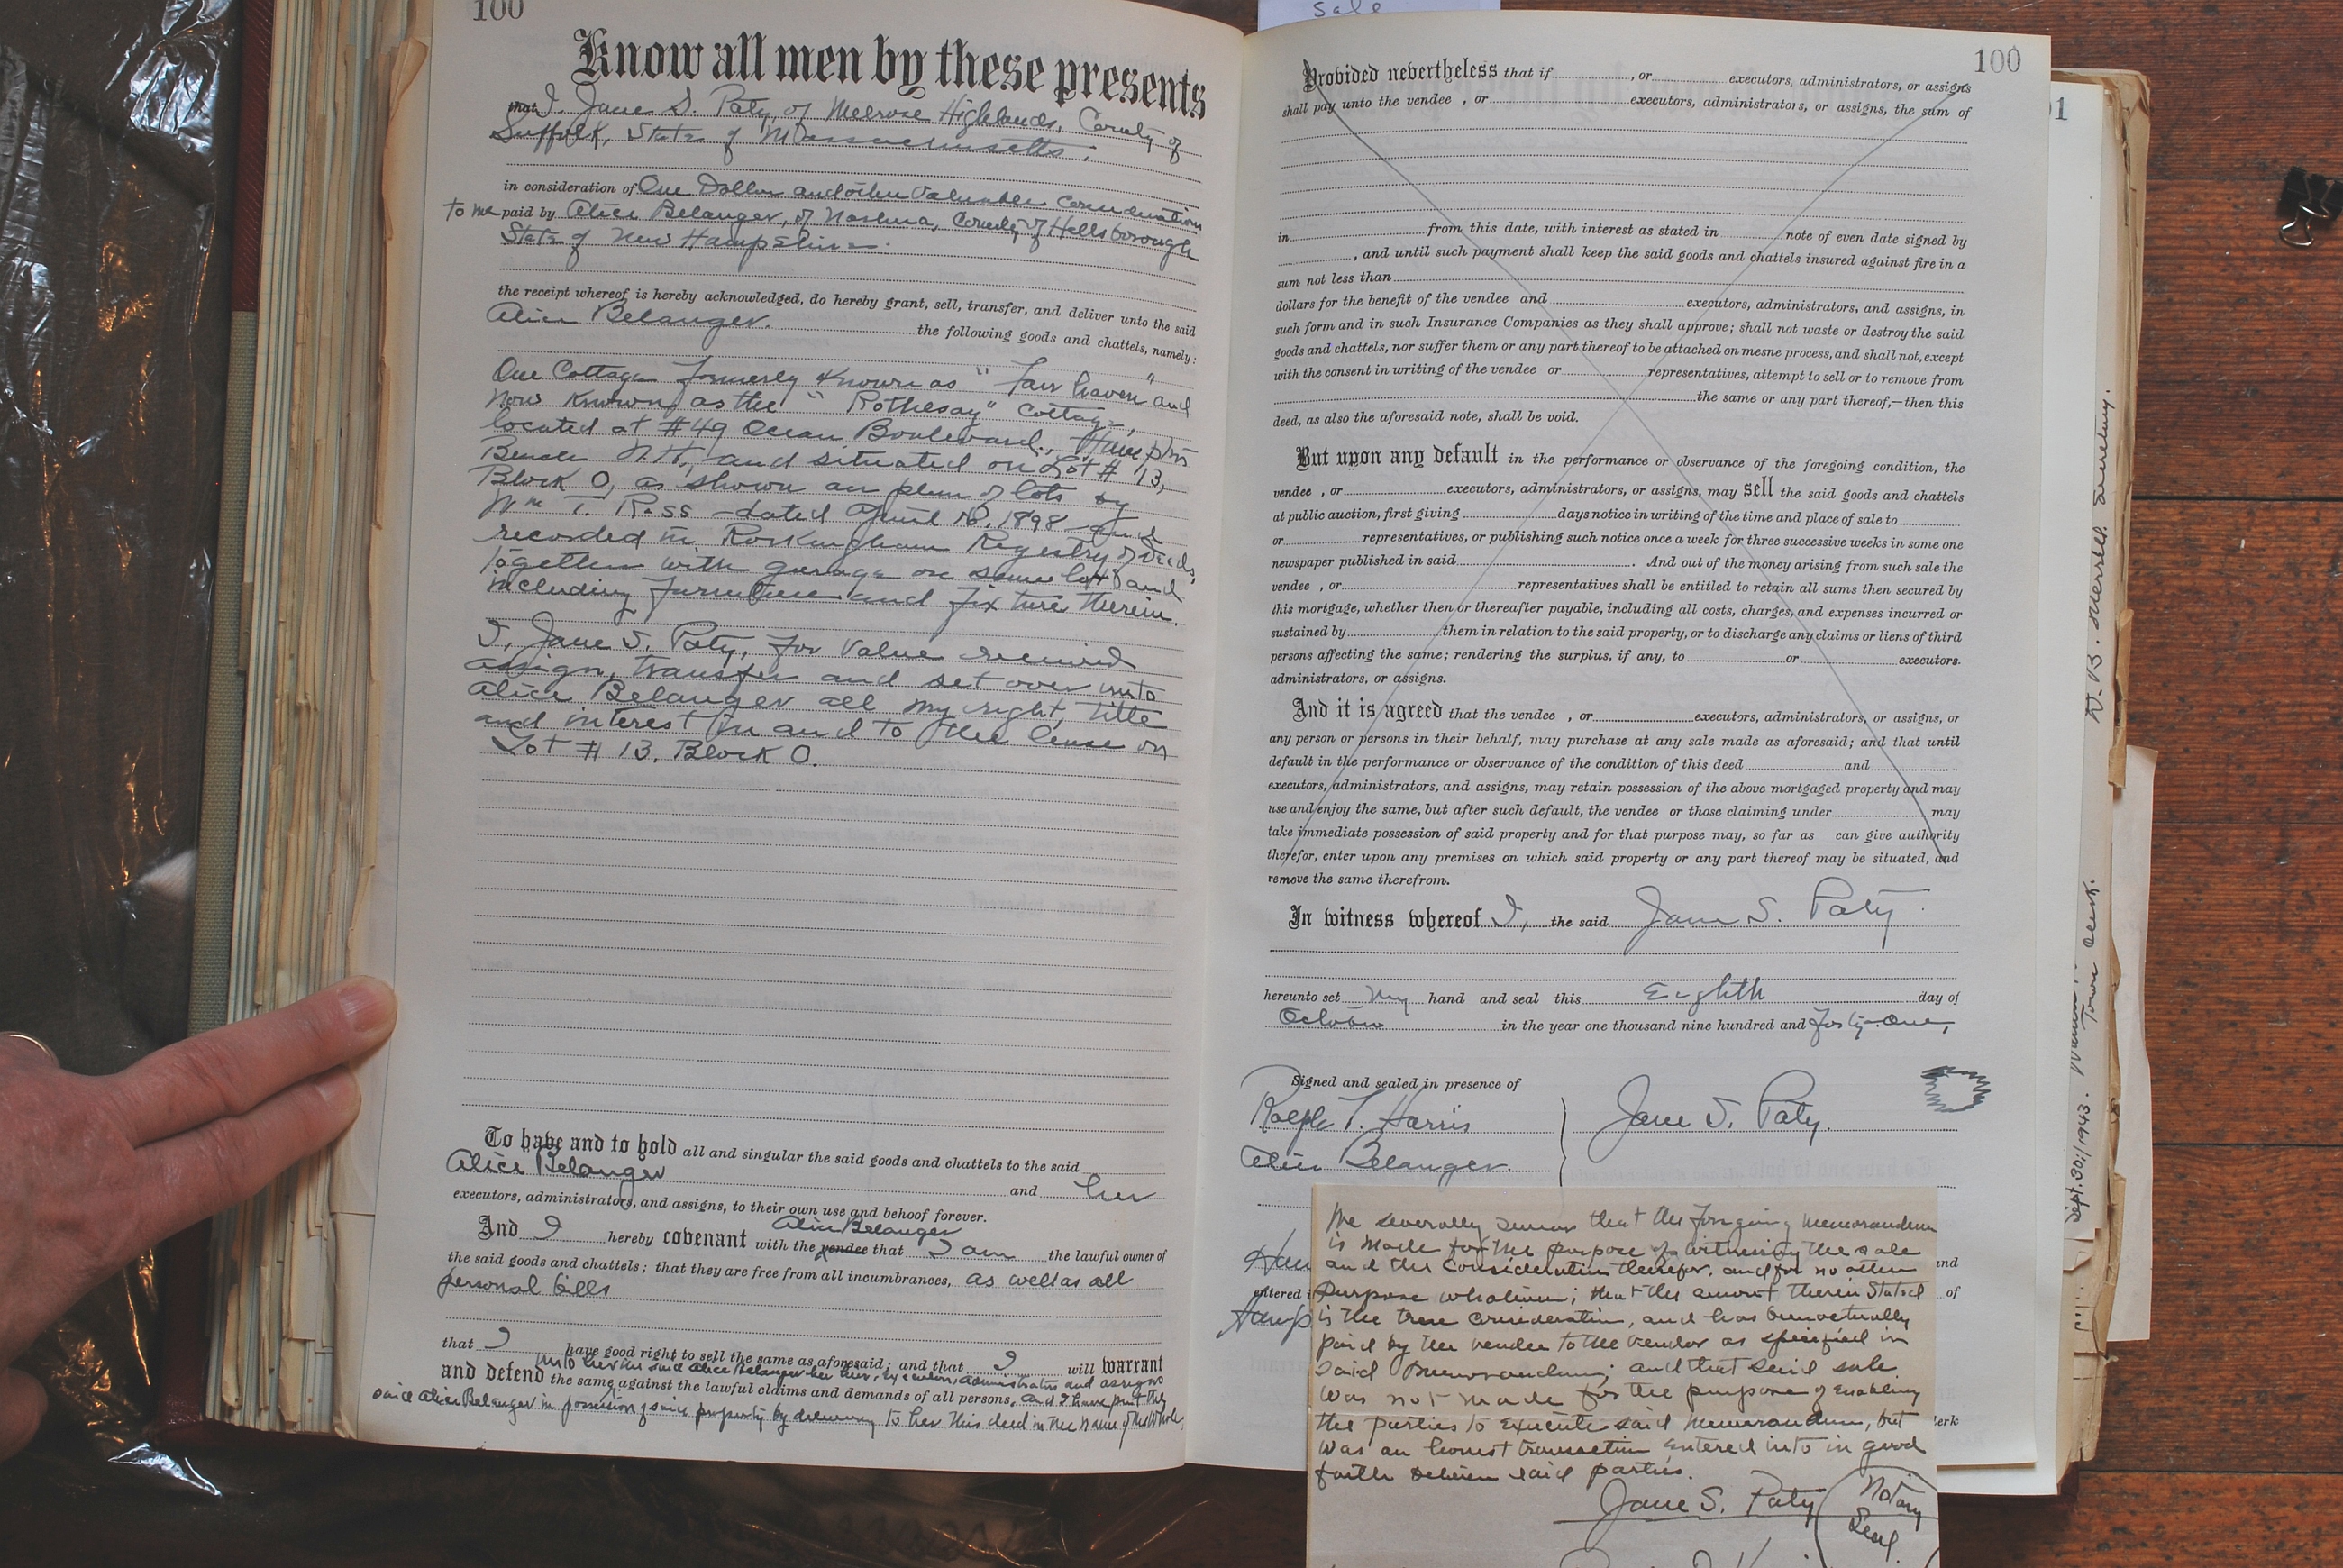 100
Know all men by these presents
that I, Jane S. Paty, of Melrose Highlands, County of
Suffolk, State of Massachusetts,
in consideration of One Dollar and other Valuable Consideration
to me paid by Alice Belanger, of Nashua, County of Hillsborough
State of New Hampshire.
the receipt whereof is hereby acknowledged, do hereby grant, sell, transfer, and deliver unto the said
Alice Belanger. the following goods and chattels, namely:
One Cottage formerly known as "Fair haven" and
now known as the "Rothesay" cottage,
located at #49 Ocean Boulevard., Hampton
Beach N.H., and situated on Lot # 13,
Block O, as shown on plan of lots by
Wm T. Ross - dated April 1898 and
recorded in Rockingham Registry of Deeds,
together with garage on same lot and
including furniture and fixture therein.
I, Jane S. Paty, for value received
assign, transfer and set over unto
Alice Belanger all my right, title
and interest in and to the lease on
Lot # 13. Block O.
To have and to hold all and singular the said goods and chattels to the said
Alice Belanger and her
executors, administrators, and assigns, to their own use and behoof forever.
Alice Belanger
And I hereby covenant with the vendee that I am the lawful owner of
the said goods and chattels; that they are free from all incumbrances, as well as all
personal bills
that I have good right to sell the same as aforesaid; and that I will warrant
unto her the said Alice Belanger her heirs, executors, administrators and assigns
and defend the same against the lawful claims and demands of all persons, and I have put the
said Alice Belanger in possession of said property by delivering to her this deed in the name of the whole,
sale
100
Provided nevertheless that if , or executors, administrators, or assigns
shall pay unto the vendee , or executors, administrators, or assigns, the sum of
in from this date, with interest as stated in note of even date signed by
, and until such payment shall keep the said goods and chattels insured against fire in a
sum not less than
dollars for the benefit of the vendee and executors, administrators, and assigns, in
such form and in such Insurance Companies as they shall approve; shall not waste or destroy the said
goods and chattels, nor suffer them or any part thereof to be attached on mesne process, and shall not, except
with the consent in writing of the vendee or representatives, attempt to sell or to remove from
the same or any part thereof,—then this
deed, as also the aforesaid note, shall be void.
But upon any default in the performance or observance of the foregoing condition, the
vendee , or executors, administrators, or assigns, may sell the said goods and chattels
at public auction, first giving days notice in writing of the time and place of sale to
or representatives, or publishing such notice once a week for three successive weeks in some one
newspaper published in said . And out of the money arising from such sale the
vendee , or representatives shall be entitled to retain all sums then secured by
this mortgage, whether then or thereafter payable, including all costs, charges, and expenses incurred or
sustained by them in relation to the said property, or to discharge any claims or liens of third
persons affecting the same; rendering the surplus, if any, to or executors.
administrators, or assigns.
And it is agreed that the vendee , or executors, administrators, or assigns, or
any person or persons in their behalf, may purchase at any sale made as aforesaid; and that until
default in the performance or observance of the condition of this deed and
executors, administrators, and assigns, may retain possession of the above mortgaged property and may
use and enjoy the same, but after such default, the vendee or those claiming under may
take immediate possession of said property and for that purpose may, so far as can give authority
therefor, enter upon any premises on which said property or any part thereof may be situated, and
remove the same therefrom.
In witness whereof I, the said Jane S. Paty
hereunto set my hand and seal this Eighth day of
October in the year one thousand nine hundred and forty-one,
Signed and sealed in presence of
Ralph T. Harris
Jane S. Paty.
Alice Belanger
We severally swear that the foregoing memorandum
is made for the purpose of witnessing the sale
and the consideration therefor, and for no other
purpose whatever; that the amount therein stated
is the true consideration, and has been actually
paid by the vendee to the vendor as specified in
said memorandum; and that said sale
was not made for the purpose of enabling
the parties to execute said memorandum, but
was an honest transaction entered into in good
faith between said parties.
Jane S. Paty
Notary
Seal
Ham
and
entered i
of
Hamp
lerk
01
Sept. 30, 1943.
Town Clerk.